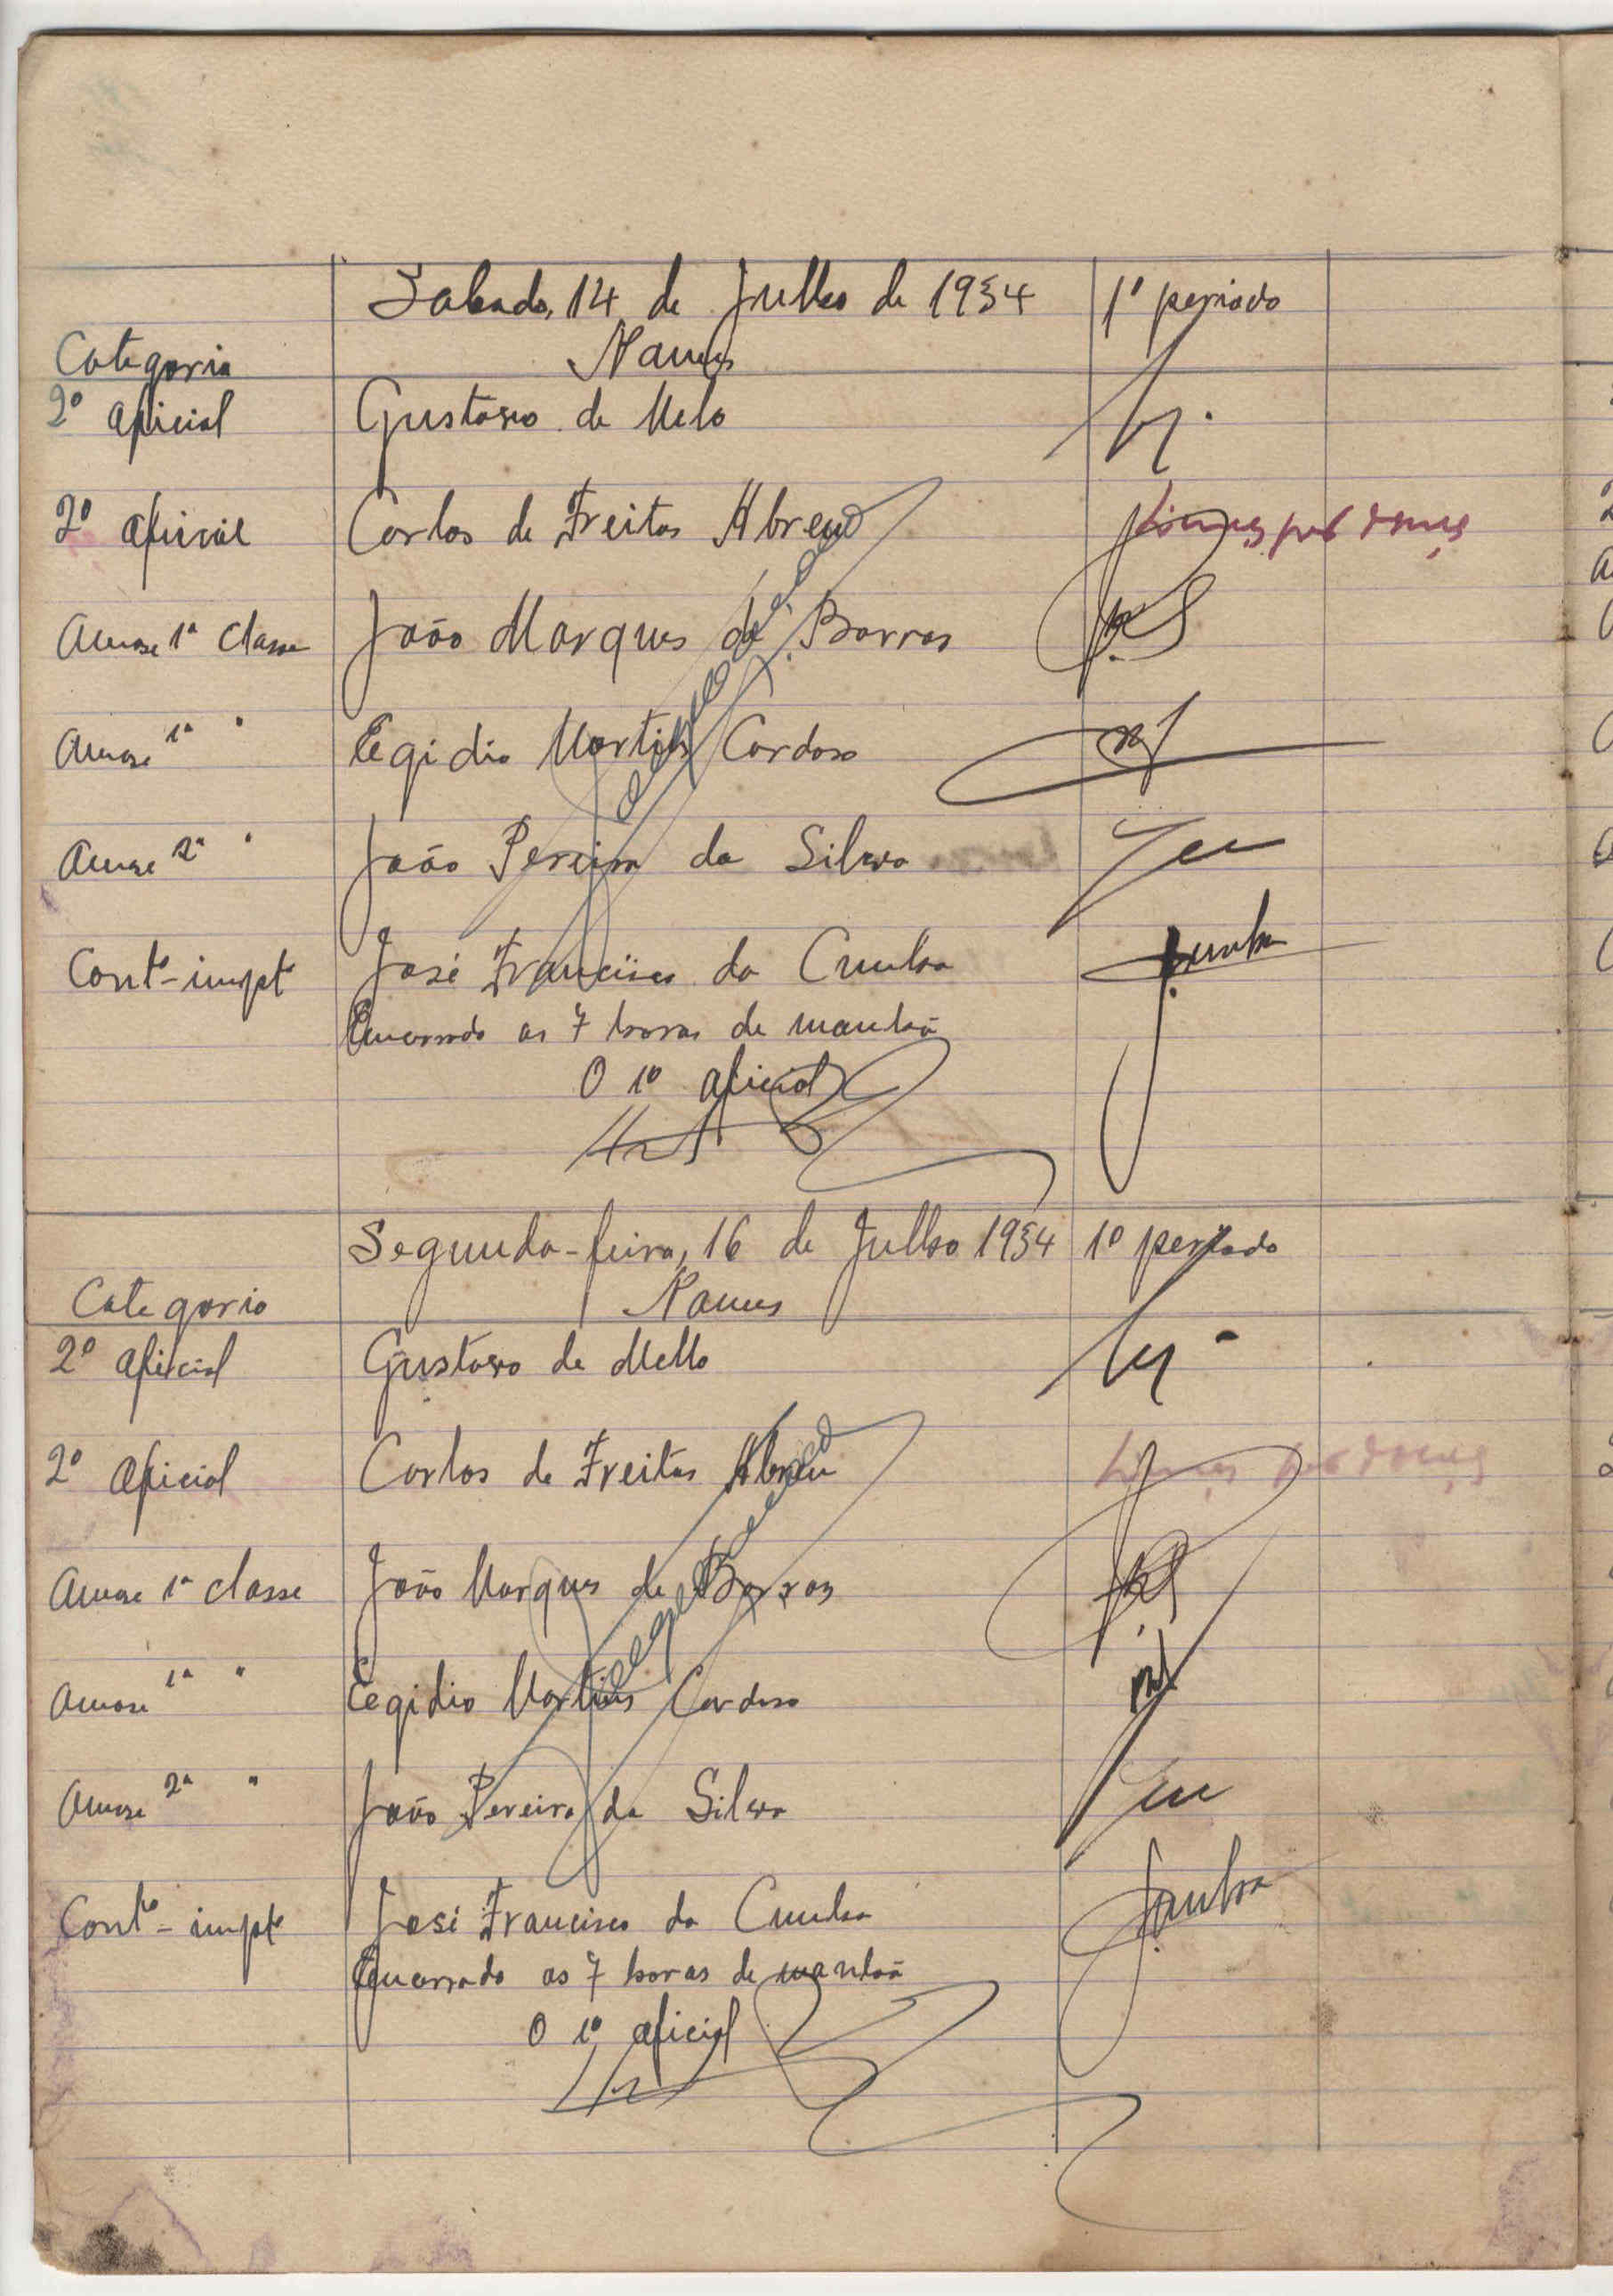 Sabado, 14 de Julho de 1934 1º periodo
Categoria Nomes
2º oficial Gustavo de Melo
2º oficial Carlos de Freitas Abreu Licença por doença
Amase 1ª classe João Marques de Barros
Amase 1ª " Egidio Martins Cardoso
Amase 2ª " João Pereira da Silva
Contº-impte José Francisco da Cunha Cunha
Encerrado as 7 horas da manhã
O 1º oficial
Segunda-feira, 16 de Julho 1934 1º periodo
Categoria Nomes
2º oficial Gustavo de Mello
2º oficial Carlos de Freitas Abreu Licença por doença
Amase 1ª classe João Marques de Barros
Amase 1ª " Egidio Martins Cardoso
Amase 2ª " João Pereira da Silva
Contº-impte José Francisco da Cunha Cunha
Encerrado as 7 horas da manhã
O 1º oficial